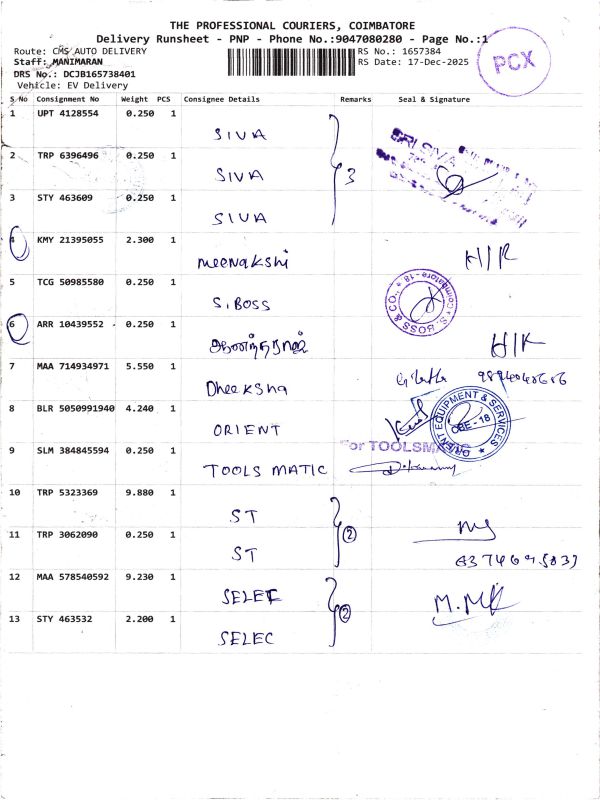 THE PROFESSIONAL COURIERS, COIMBATORE
Delivery Runsheet - PNP - Phone No.:9047080280 - Page No.:1
Route: CMS AUTO DELIVERY RS No.: 1657384
Staff: MANIMARAN RS Date: 17-Dec-2025
DRS No.: DCJB165738401
Vehicle: EV Delivery
PCX
S No Consignment No Weight PCS Consignee Details Remarks Seal & Signature
1 UPT 4128554 0.250 1
SIVA
2 TRP 6396496 0.250 1
SIVA 3
3 STY 463609 0.250 1
SIVA
4 KMY 21395055 2.300 1
meenakshi H/R
5 TCG 50985580 0.250 1
S. BOSS
S. BOSS & CO., Coimbatore-18
6 ARR 10439552 0.250 1
7 MAA 714934971 5.550 1
Dheeksha
8 BLR 5050991940 4.240 1
ORIENT
ORIENT EQUIPMENT & SERVICES
CBE-18
9 SLM 384845594 0.250 1
For TOOLSMATIC
TOOLS MATIC
10 TRP 5323369 9.880 1
ST
2
11 TRP 3062090 0.250 1
ST
12 MAA 578540592 9.230 1
SELEC
2
M.MK
13 STY 463532 2.200 1
SELEC